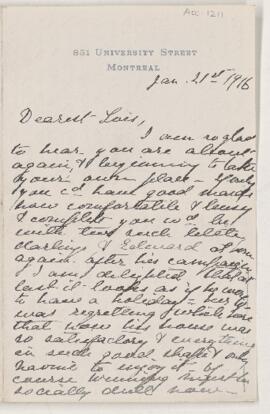 Acc. 1211
851 UNIVERSITY STREET
MONTREAL
Jan. 21st 1916
Dearest Lois,
I am so glad
to hear you are about
again, & beginning to take
your own place –
you c'd have good
how comfortable &
& complete you w'd be
with two such little
darlings & Edward at home
again after his campaign
I am delighted that at
last it looks as if he was
to have a holiday – her
was regretting
that now his house was
so satisfactory & everything
in such good shape & only
having to enjoy it by
course
socially dull now –